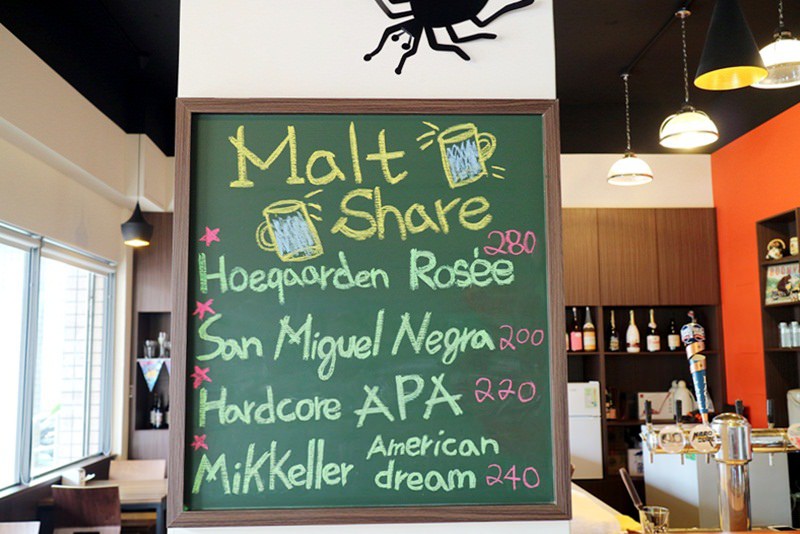 Malt
Share
Hoegaarden Rosée 280
San Miguel Negra 200
Hardcore APA 220
MiKKeller American dream 240